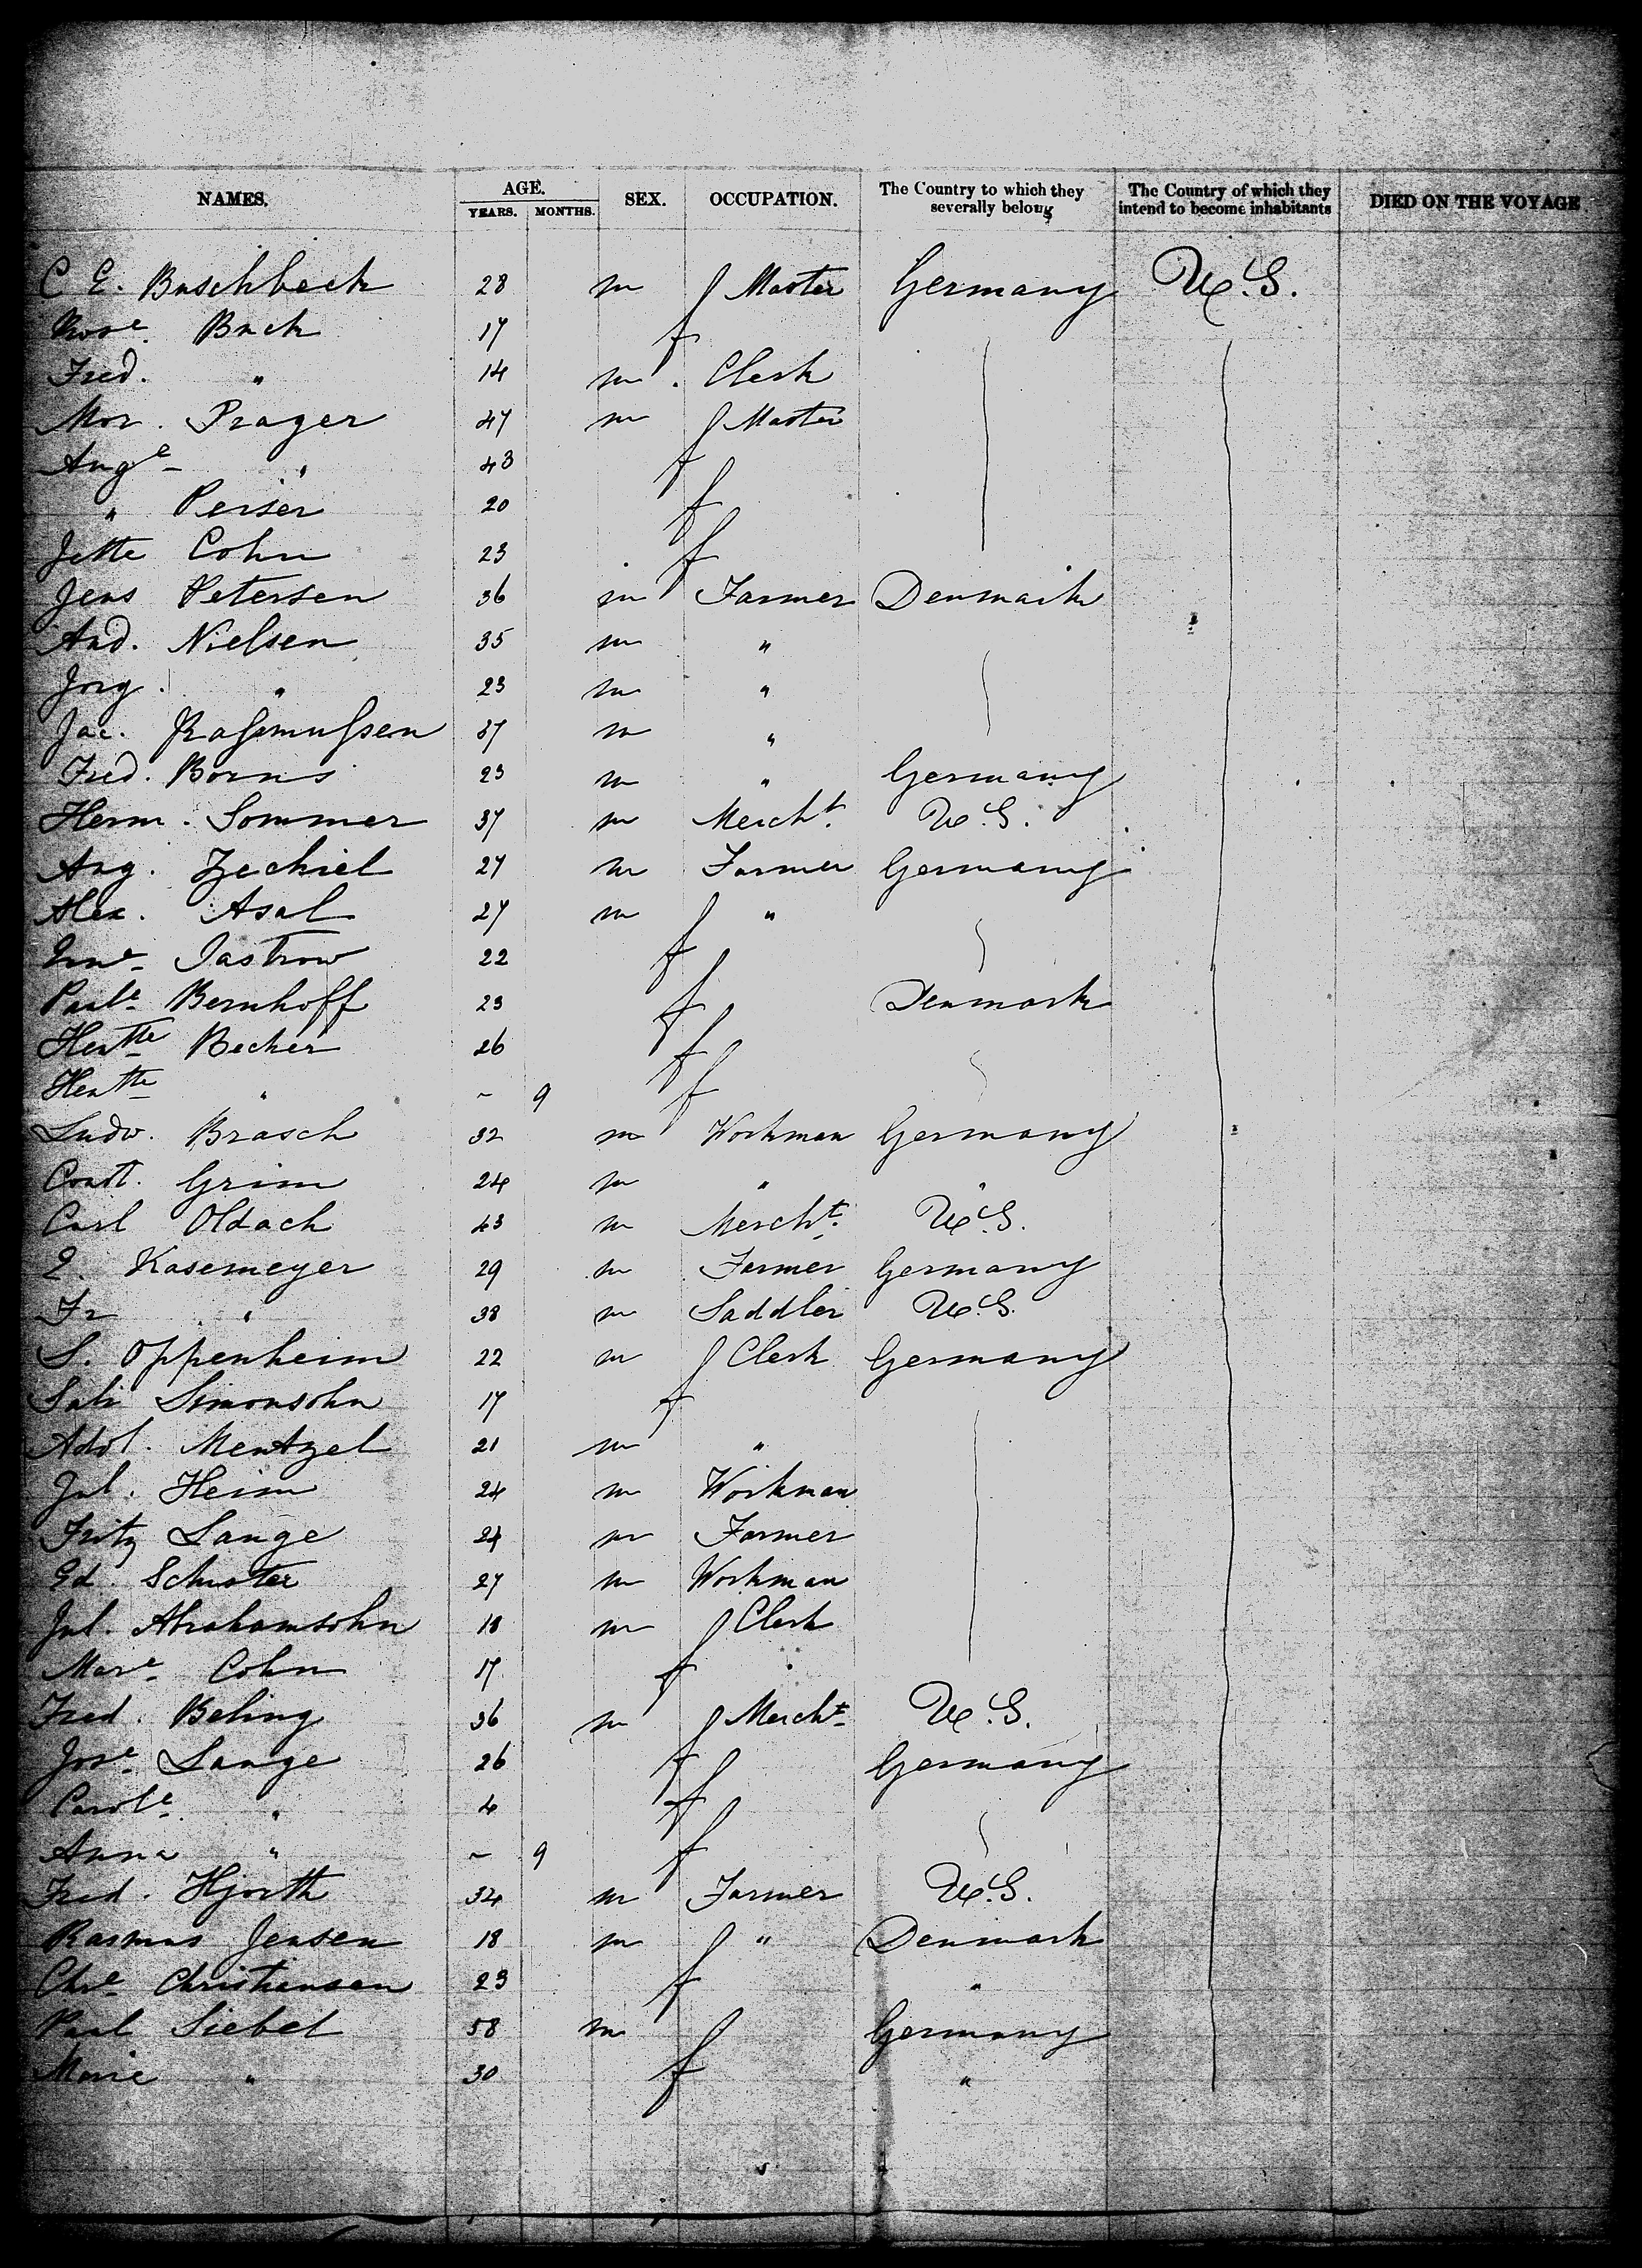 NAMES. AGE. SEX. OCCUPATION. The Country to which they severally belong The Country of which they intend to become inhabitants DIED ON THE VOYAGE
YEARS. MONTHS.
C E. Buschbeck 28 m Master Germany U.S.
Rose. Buck 17 f
Fred. " 14 m Clerk
Mor. Prager 47 m Master
Auge " 43 f
" Perser 20 f
Jette Cohn 23 f
Jens Petersen 36 m Farmer Denmark
And. Nielsen 35 m "
Jorg. " 23 m "
Jac. Rassmussen 37 m "
Fred. Borns 23 m " Germany
Herm. Sommer 37 m Mercht. U.S.
Aug. Zechiel 27 m Farmer Germany
Alex. Asal 27 m "
Jastrow 22 f
Paule Bernhoff 23 f Denmark
Hentte Becker 26 f
Hentte " ~ 9 f
Ludw. Brasch 32 m Workman Germany
Const. Grim 24 m " "
Carl Oldach 43 m Mercht. U.S.
Kasemeyer 29 m Farmer Germany
Fr " 38 m Saddler U.S.
S. Oppenheim 22 m Clerk Germany
Simonsohn 17 f
Adol. Mentzel 21 m "
Jul. Heim 24 m Workman
Fritz Lange 24 m Farmer
Ed. Schuster 27 m Workman
Jul. Abrahamsohn 18 m Clerk
Mare Cohn 17 f
Fred. Behing 36 m Mercht. U.S.
Jose Lange 26 f Germany
Carole " 4 f
Anna " ~ 9 f
Fred. Hjorth 34 m Farmer U.S.
Rasmus Jensen 18 m " Denmark
Chre Christiansen 23 f "
Paul Siebel 58 m Germany
Marie " 30 f "